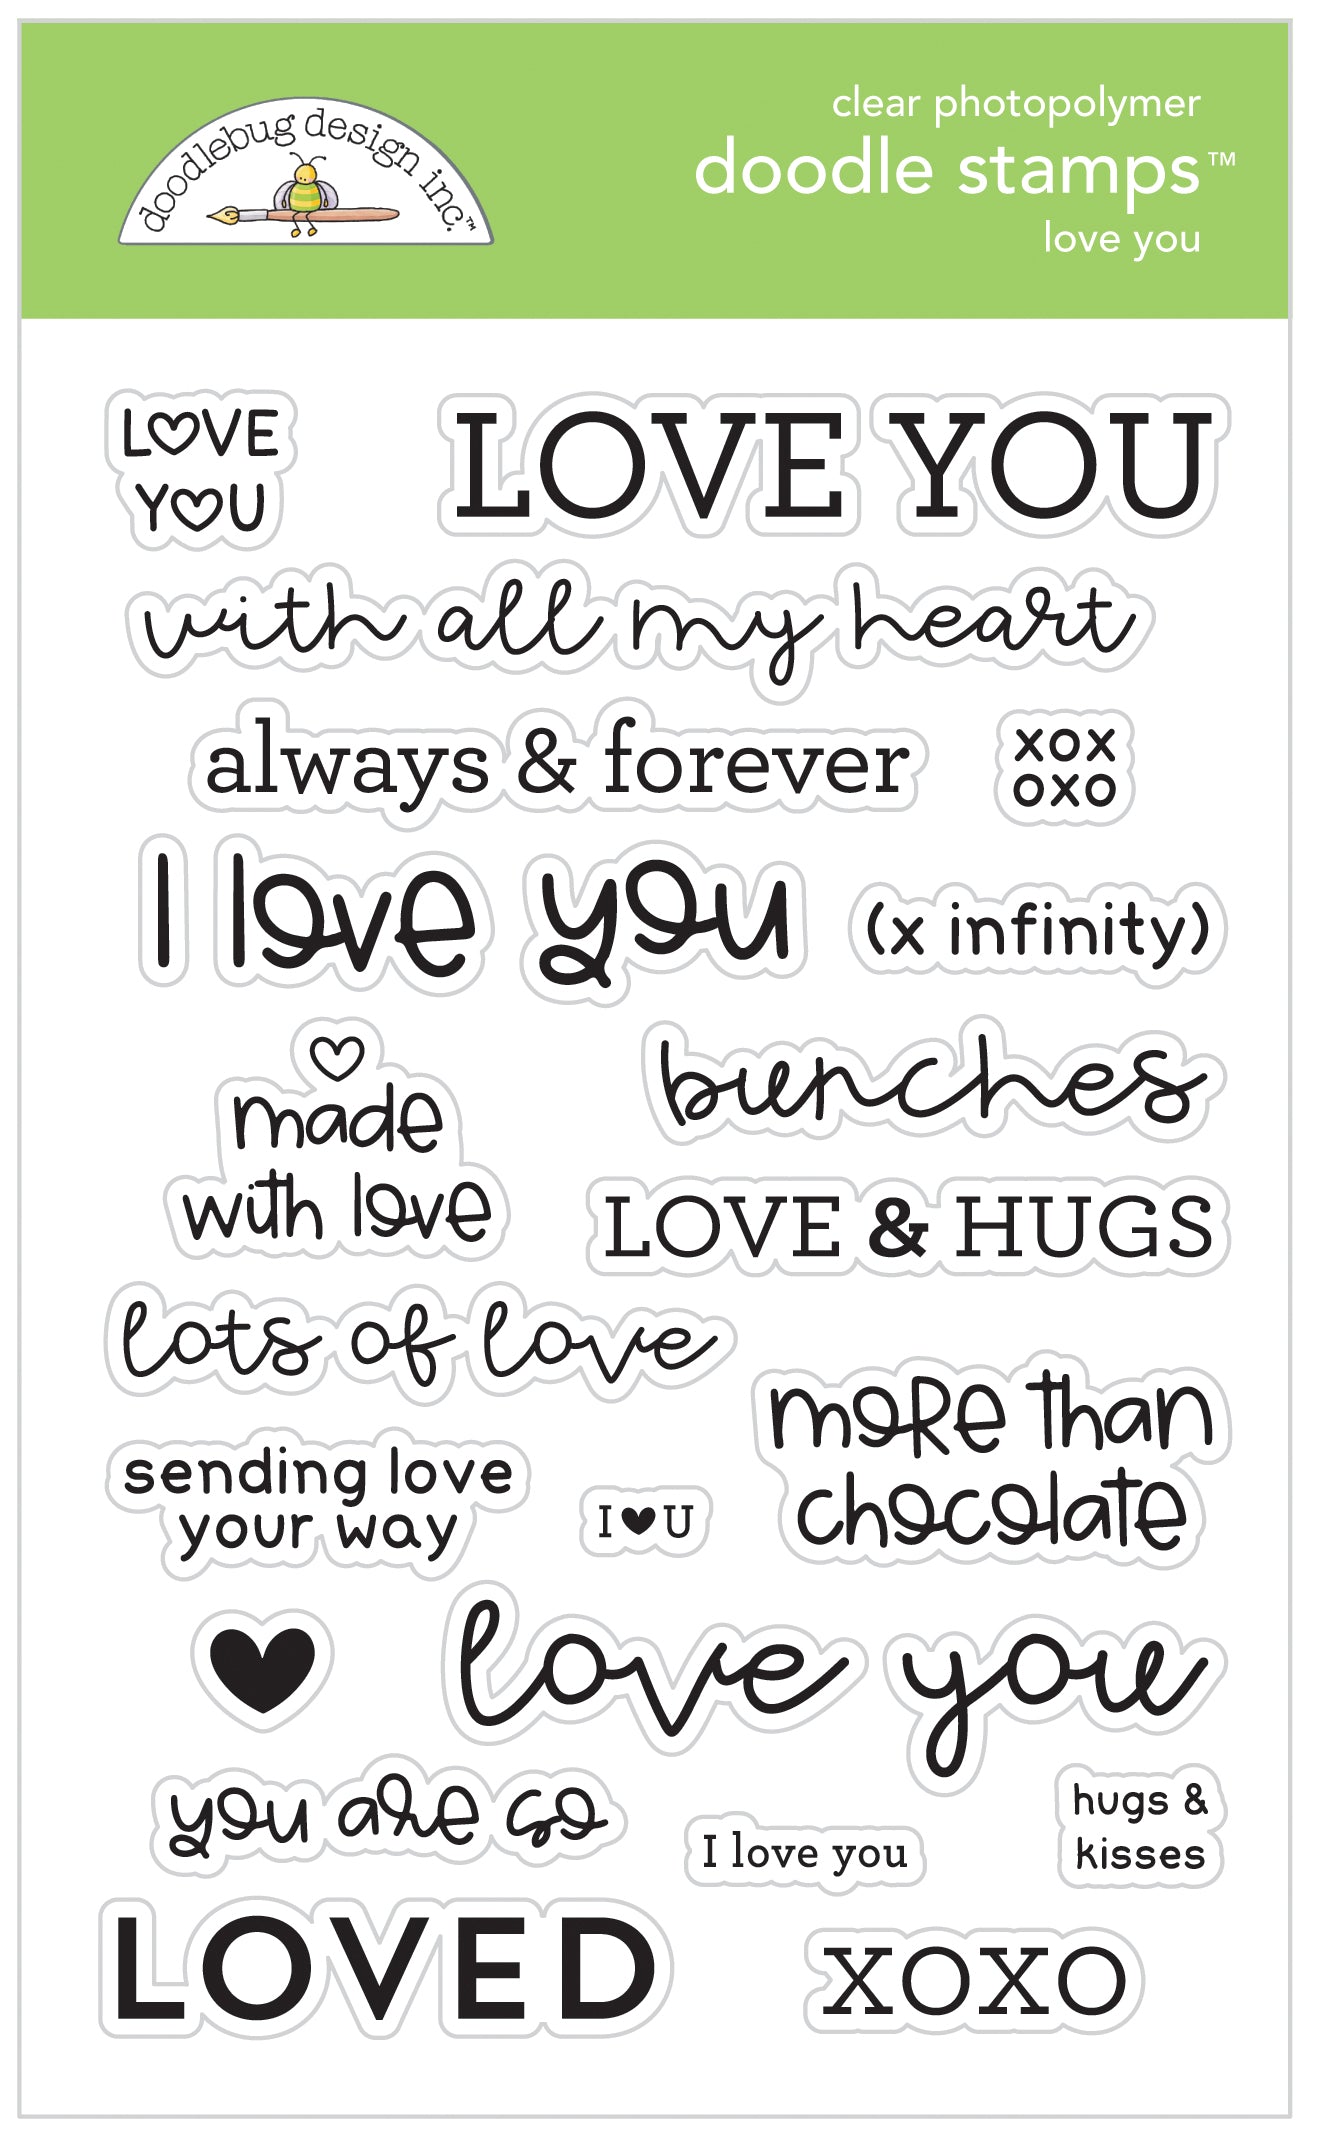 doodlebug design inc.™
clear photopolymer
doodle stamps™
love you
LOVE
YOU
LOVE YOU
with all my heart
always & forever
xox
oxo
I love you
(x infinity)
made
with love
bunches
LOVE & HUGS
lots of love
more than
chocolate
sending love
your way
I♥U
love you
you are so
I love you
hugs &
kisses
LOVED
XOXO